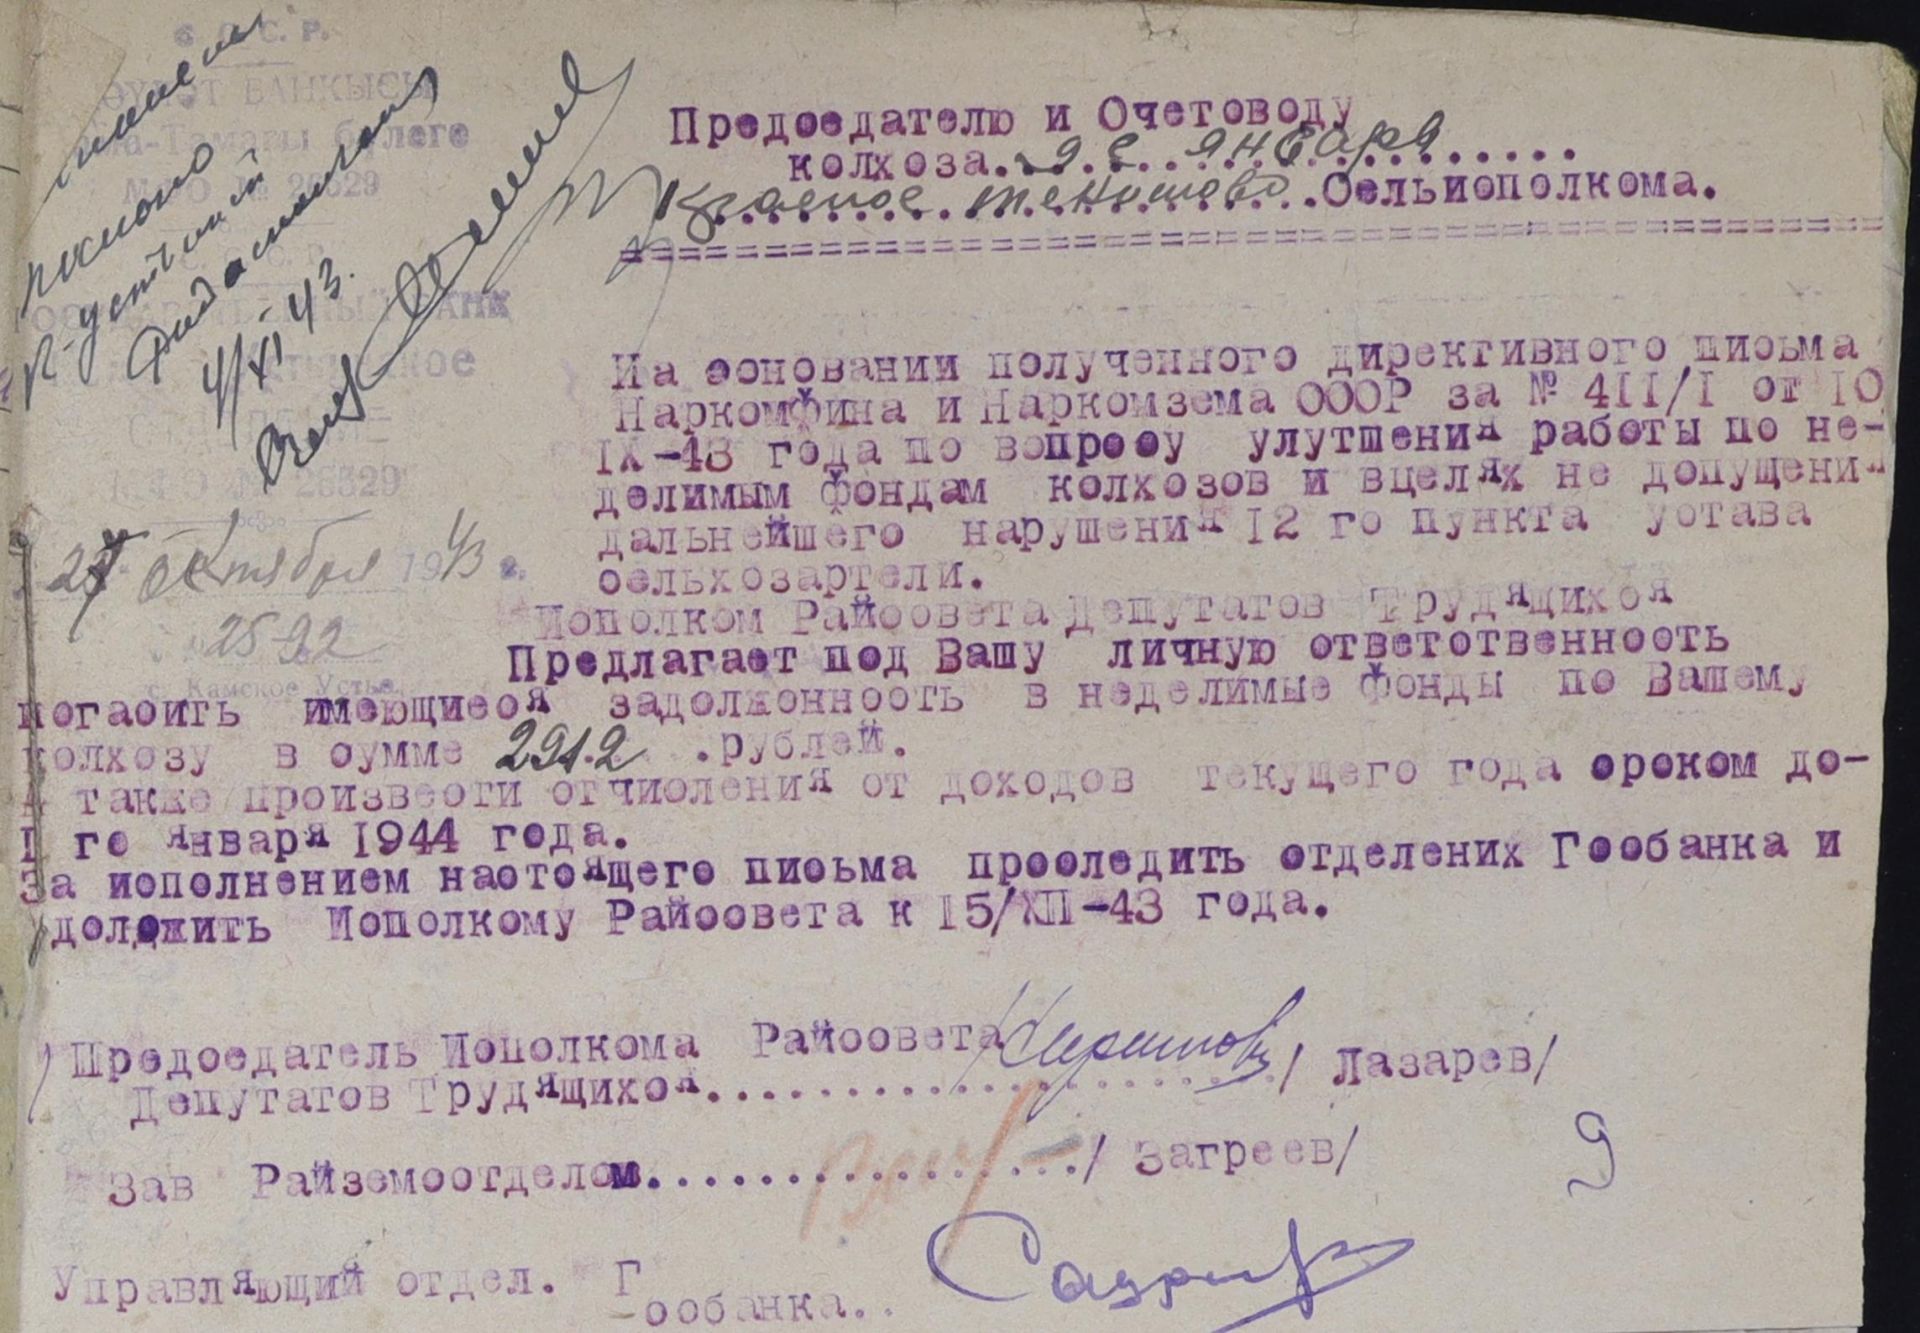 С. С. С. Р.
БАНКЫСЫ
Кама-Тамагы бүлеге
М.Ф.О № 26529
С. С. С. Р.
ГОСУДАРСТВЕННЫЙ БАНК
М.Ф.О № 26529
4/XI 43.
27 октября 1943 г.
2592
с. Камское Устье
Предоедателю и Очетоводу
колхоза. 9 е января
Красное тенишево Оельиополкома.
На основании полученного директивного пиоьма
Наркомфина и Наркомзема ОООР за № 4II/I от IO
IX-43 года по вопрооу улутшения работы по не-
делимым фондам колхозов и вцелях не допущения
дальнейшего нарушения I2 го пункта уотава
оельхозартели.
Иополком Райоовета Депутатов Трудящихоя
Предлагает под Вашу личную ответотвеннооть
погаоить имеющиеоя задолжоннооть в неделимые фонды по Вашему
колхозу в оумме 2912 .рублей.
А также произвеоти отчиоления от доходов текущего года ороком до-
I го января I944 года.
За иополнением наотоящего пиоьма прооледить отделених Гообанка и
доложить Иополкому Райоовета к I5/XII-43 года.
Предоедатель Иополкома Райоовета
Депутатов Трудящихоя....................../ Лазарев/
Зав Райземоотделом................../ Загреев/
9
Управляющий отдел. Гообанка..